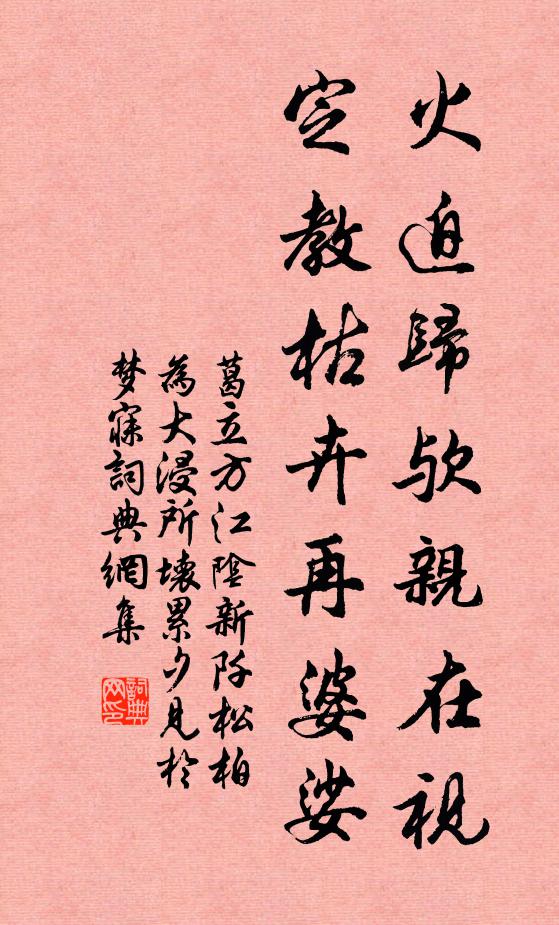 火迫歸歟親在視
定教枯卉再婆娑
葛立方江陰新阡松柏
為大浸所壞累夕見於
梦寐詞典網集
詞典網印